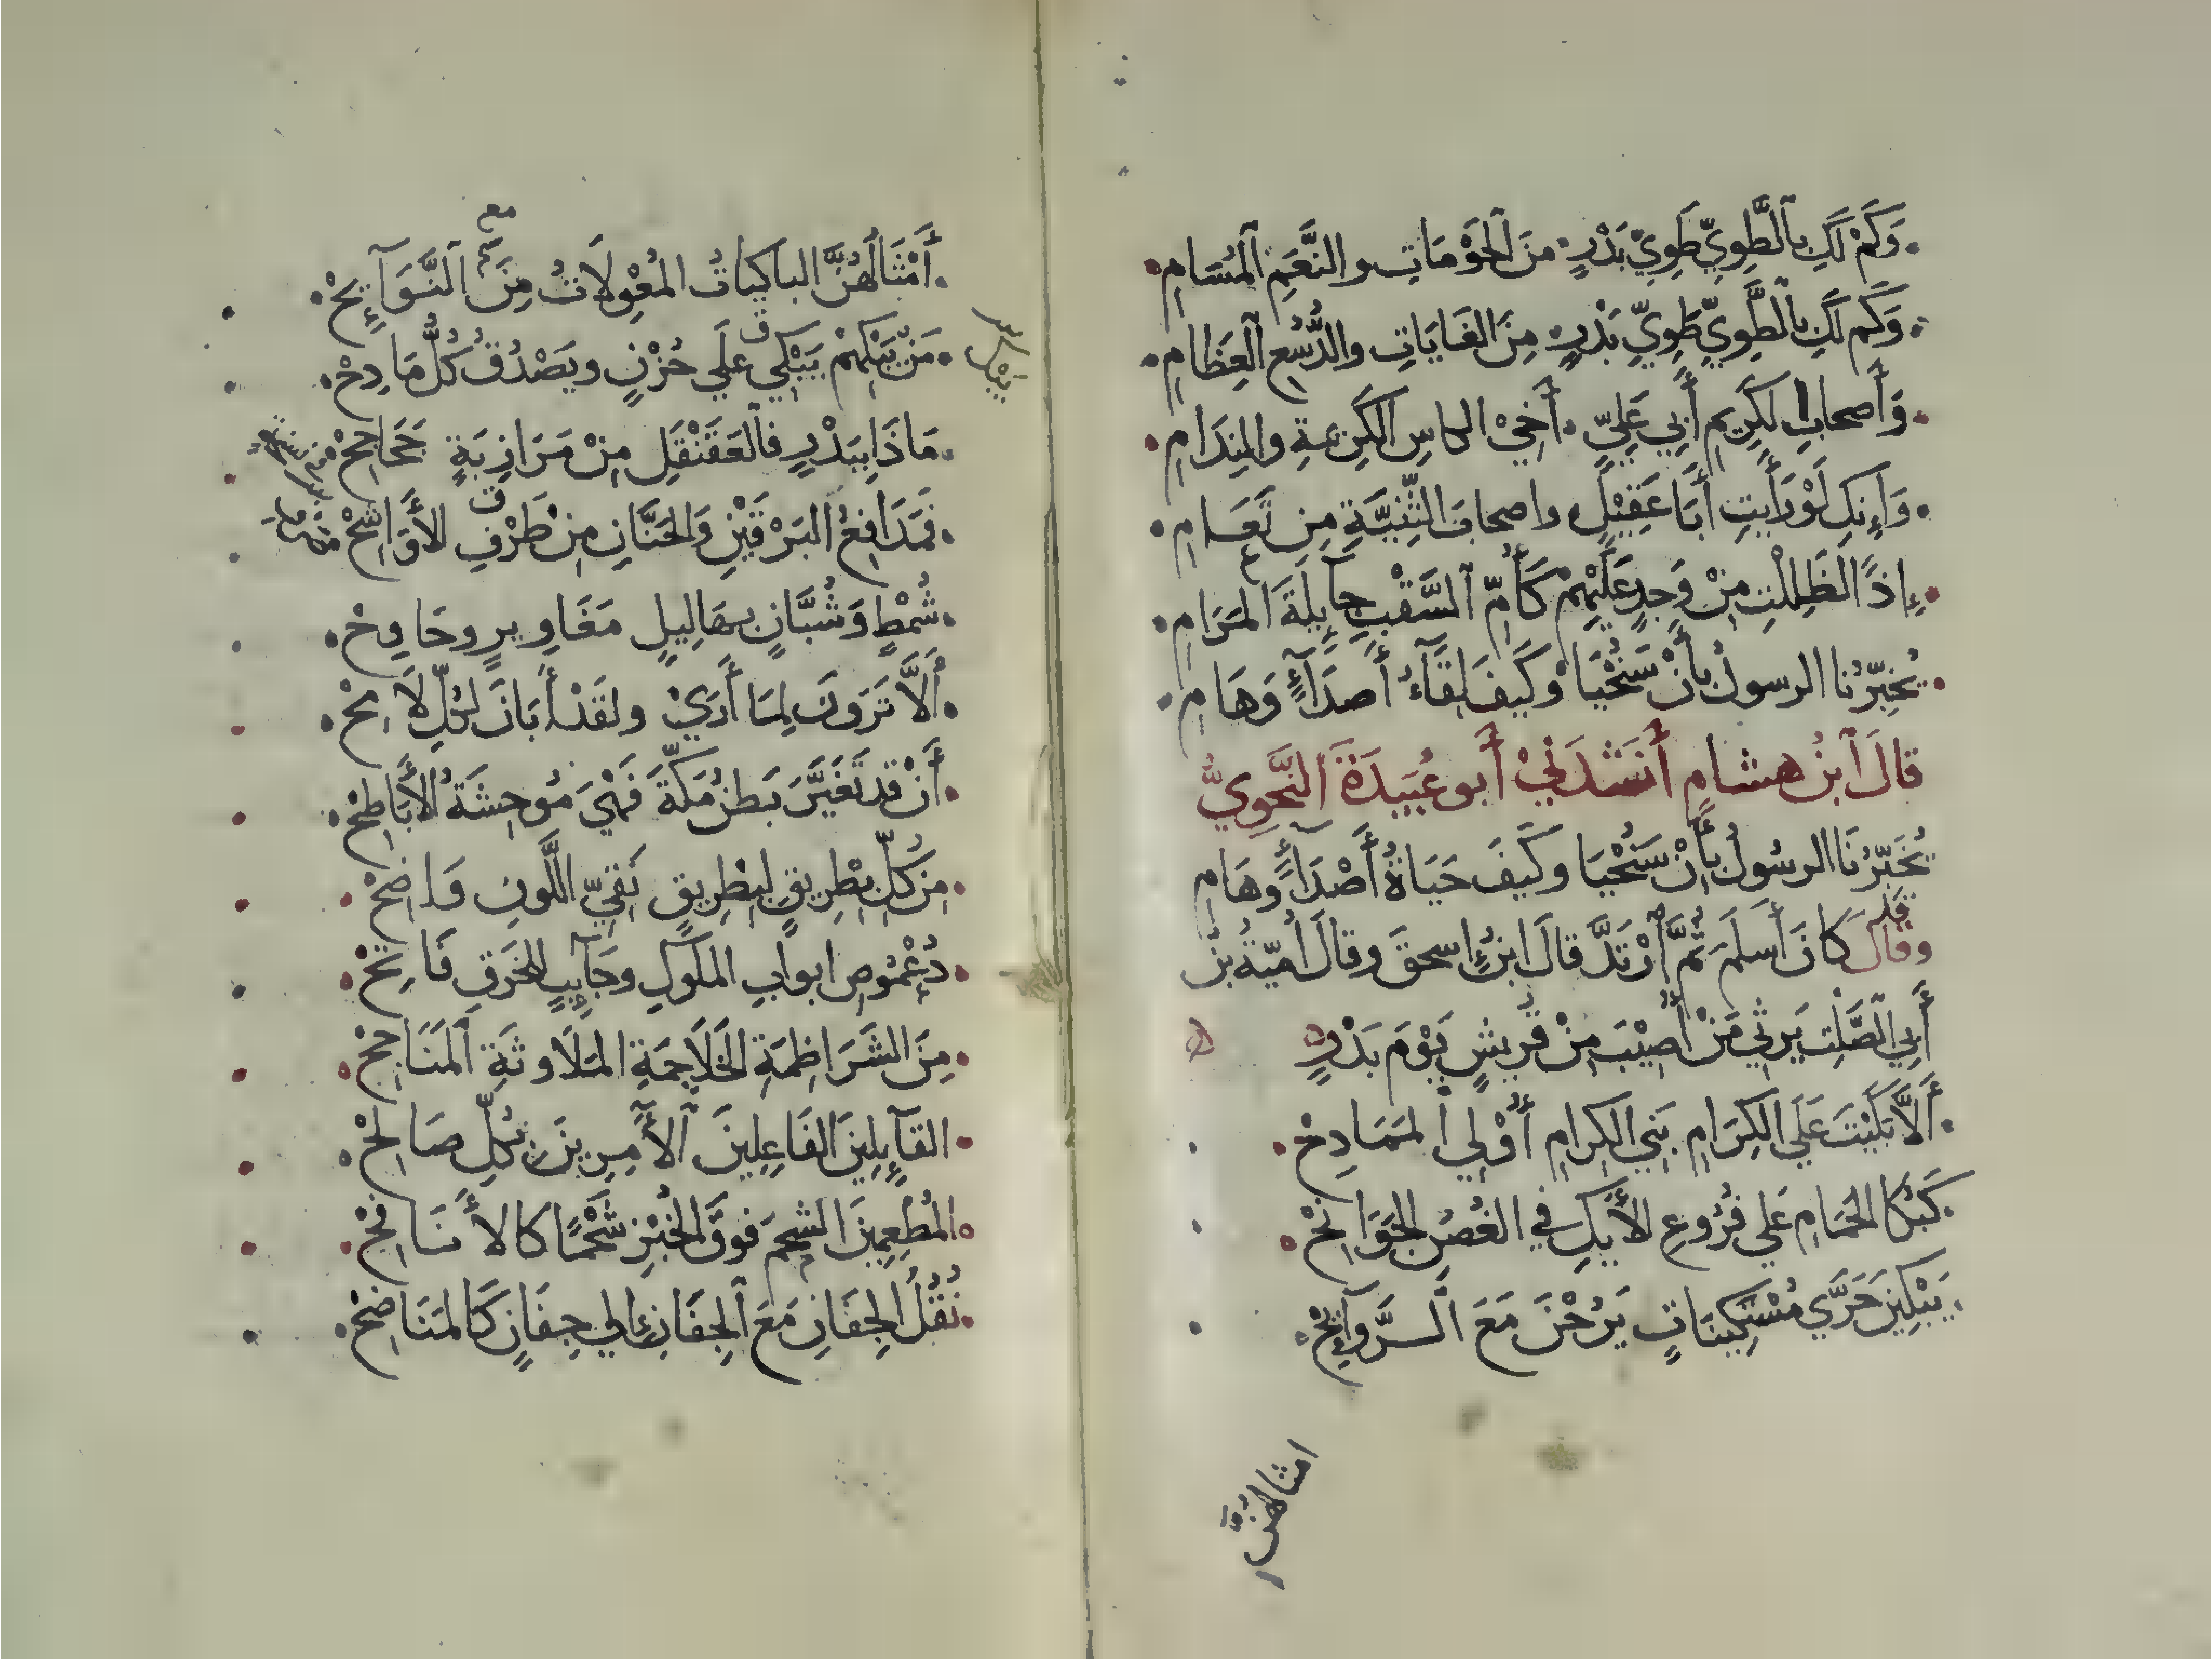 وَكَمْ لَكِ بِالطَّوِيِّ طَوِيِّ بَدْرٍ مِنَ الْحَوْمَاتِ والنَّعَمِ الْمُسَامِ
وَكَم لَكِ بِالطَّوِيِّ طَوِيِّ بَدْرٍ مِنَ الْغَايَاتِ والدُّسُعِ الْعِظَامِ
وَأَصحابِ الكَرِيمِ أَبِي عَلِيٍّ أَخِيْ الكاسِ الْكَرِيمةِ والنِدَامِ
وَإِنكِ لَوْ رَأَيتِ أَبَا عَقِيْلٍ واصحابَ الثَّنِيَّةِ مِن نَعَامِ
إِذًا لَظَلِلْتِ مِنْ وَجدٍ عَلَيْهِمْ كَأُمِّ السَّقْبِ جآئِلَةَ المَرَامِ
يُخَبِّرُنا الرسولُ بأَنْ سَنُحْيَا وكَيفَ لِقَآءُ أَصدَآءٍ وَهَامِ
قالَ ابنُ هشامٍ أَنشَدَنيْ أَبو عُبَيدَةَ النَّحْوِيُّ
يُخَبِّرُنَا الرسُولُ بأَنْ سَنُحْيَا وكَيفَ حَيَاةُ أَصْدَآءٍ وهَامِ
وقالَ كانَ أَسلَمَ ثُمَّ ارْتَدَّ قالَ ابنُ إِسحقَ وقالَ أُميّةُ بنُ
أَبِي الصَّلتِ يَرثي مَنْ أُصِيْبَ مِنْ قُرَيشٍ يَوْمَ بَدْرٍ
أَلَّا بَكَيْتَ عَلَي الكِرَامِ بَنِي الكِرامِ أُوْلِي المَمَادِحْ
كَبُكَا الحَمَامِ عَلي فُرُوعِ الأَيْكِ في الغُصُنِ الجَوَانِحْ
يَبْكِينَ حَرَّي مُسْتَكِينَاتٍ يَرُحْنَ مَعَ الرَّوَآئِحْ
امثالهُنَّ
أَمْثَالُهُنَّ الباكِياتُ المُعْوِلَاتُ مِنَ النَّوَآئِحْ
مع
مَنْ يَبْكِهِمْ يَبْكِي عَلَي حُزْنٍ ويَصْدُقُ كُلُّ مَادِحْ
مَاذَا بِبَدْرٍ فالعَقَنْقَلِ مِنْ مَرَازِبَةٍ جَحَاجِحْ
فَمَدَافِعُ البَرْقَيْنِ وَالحَنَّانِ مِنْ طَرْفِ الأَوَاشِحْ
شُمْطٍ وَشُبَّانٍ بهَالِيلٍ مَغَاوِيرٍ وحَاوِحْ
أَلَّا تَرَونَ لِمَا أَرَيْ ولقَدْ أَبَانَ لكُلِّ لَامِحْ
أَنْ قد تَغَيَّرَ بَطنُ مَكَّةَ فَهْيَ مُوحِشَةُ الأَبَاطِحْ
مِن كُلِّ بِطْرِيقٍ لِبِطْرِيقٍ نَقِيِّ اللَّونِ وَاضِحْ
دُعْمُوصِ ابوابِ الملُوكِ وجَآئِبٍ للخَرقِ فَاتِحْ
مِنَ الشَرَاظِمَةِ الخَلَاجِمَةِ المَلَاوِثَةِ المَنَاجِحْ
القآئِلِينَ الفَاعِلِينَ الآمِرِينَ بِكُلِّ صَالِحْ
المُطْعِمِينَ الشحمَ فوقَ الخُبْزِ شَحْمًا كالأَنَافِحْ
نُقُلُ الجِفَانِ مَعَ الجِفَانِ إِلي جِفَانٍ كَالمَنَاضِحْ